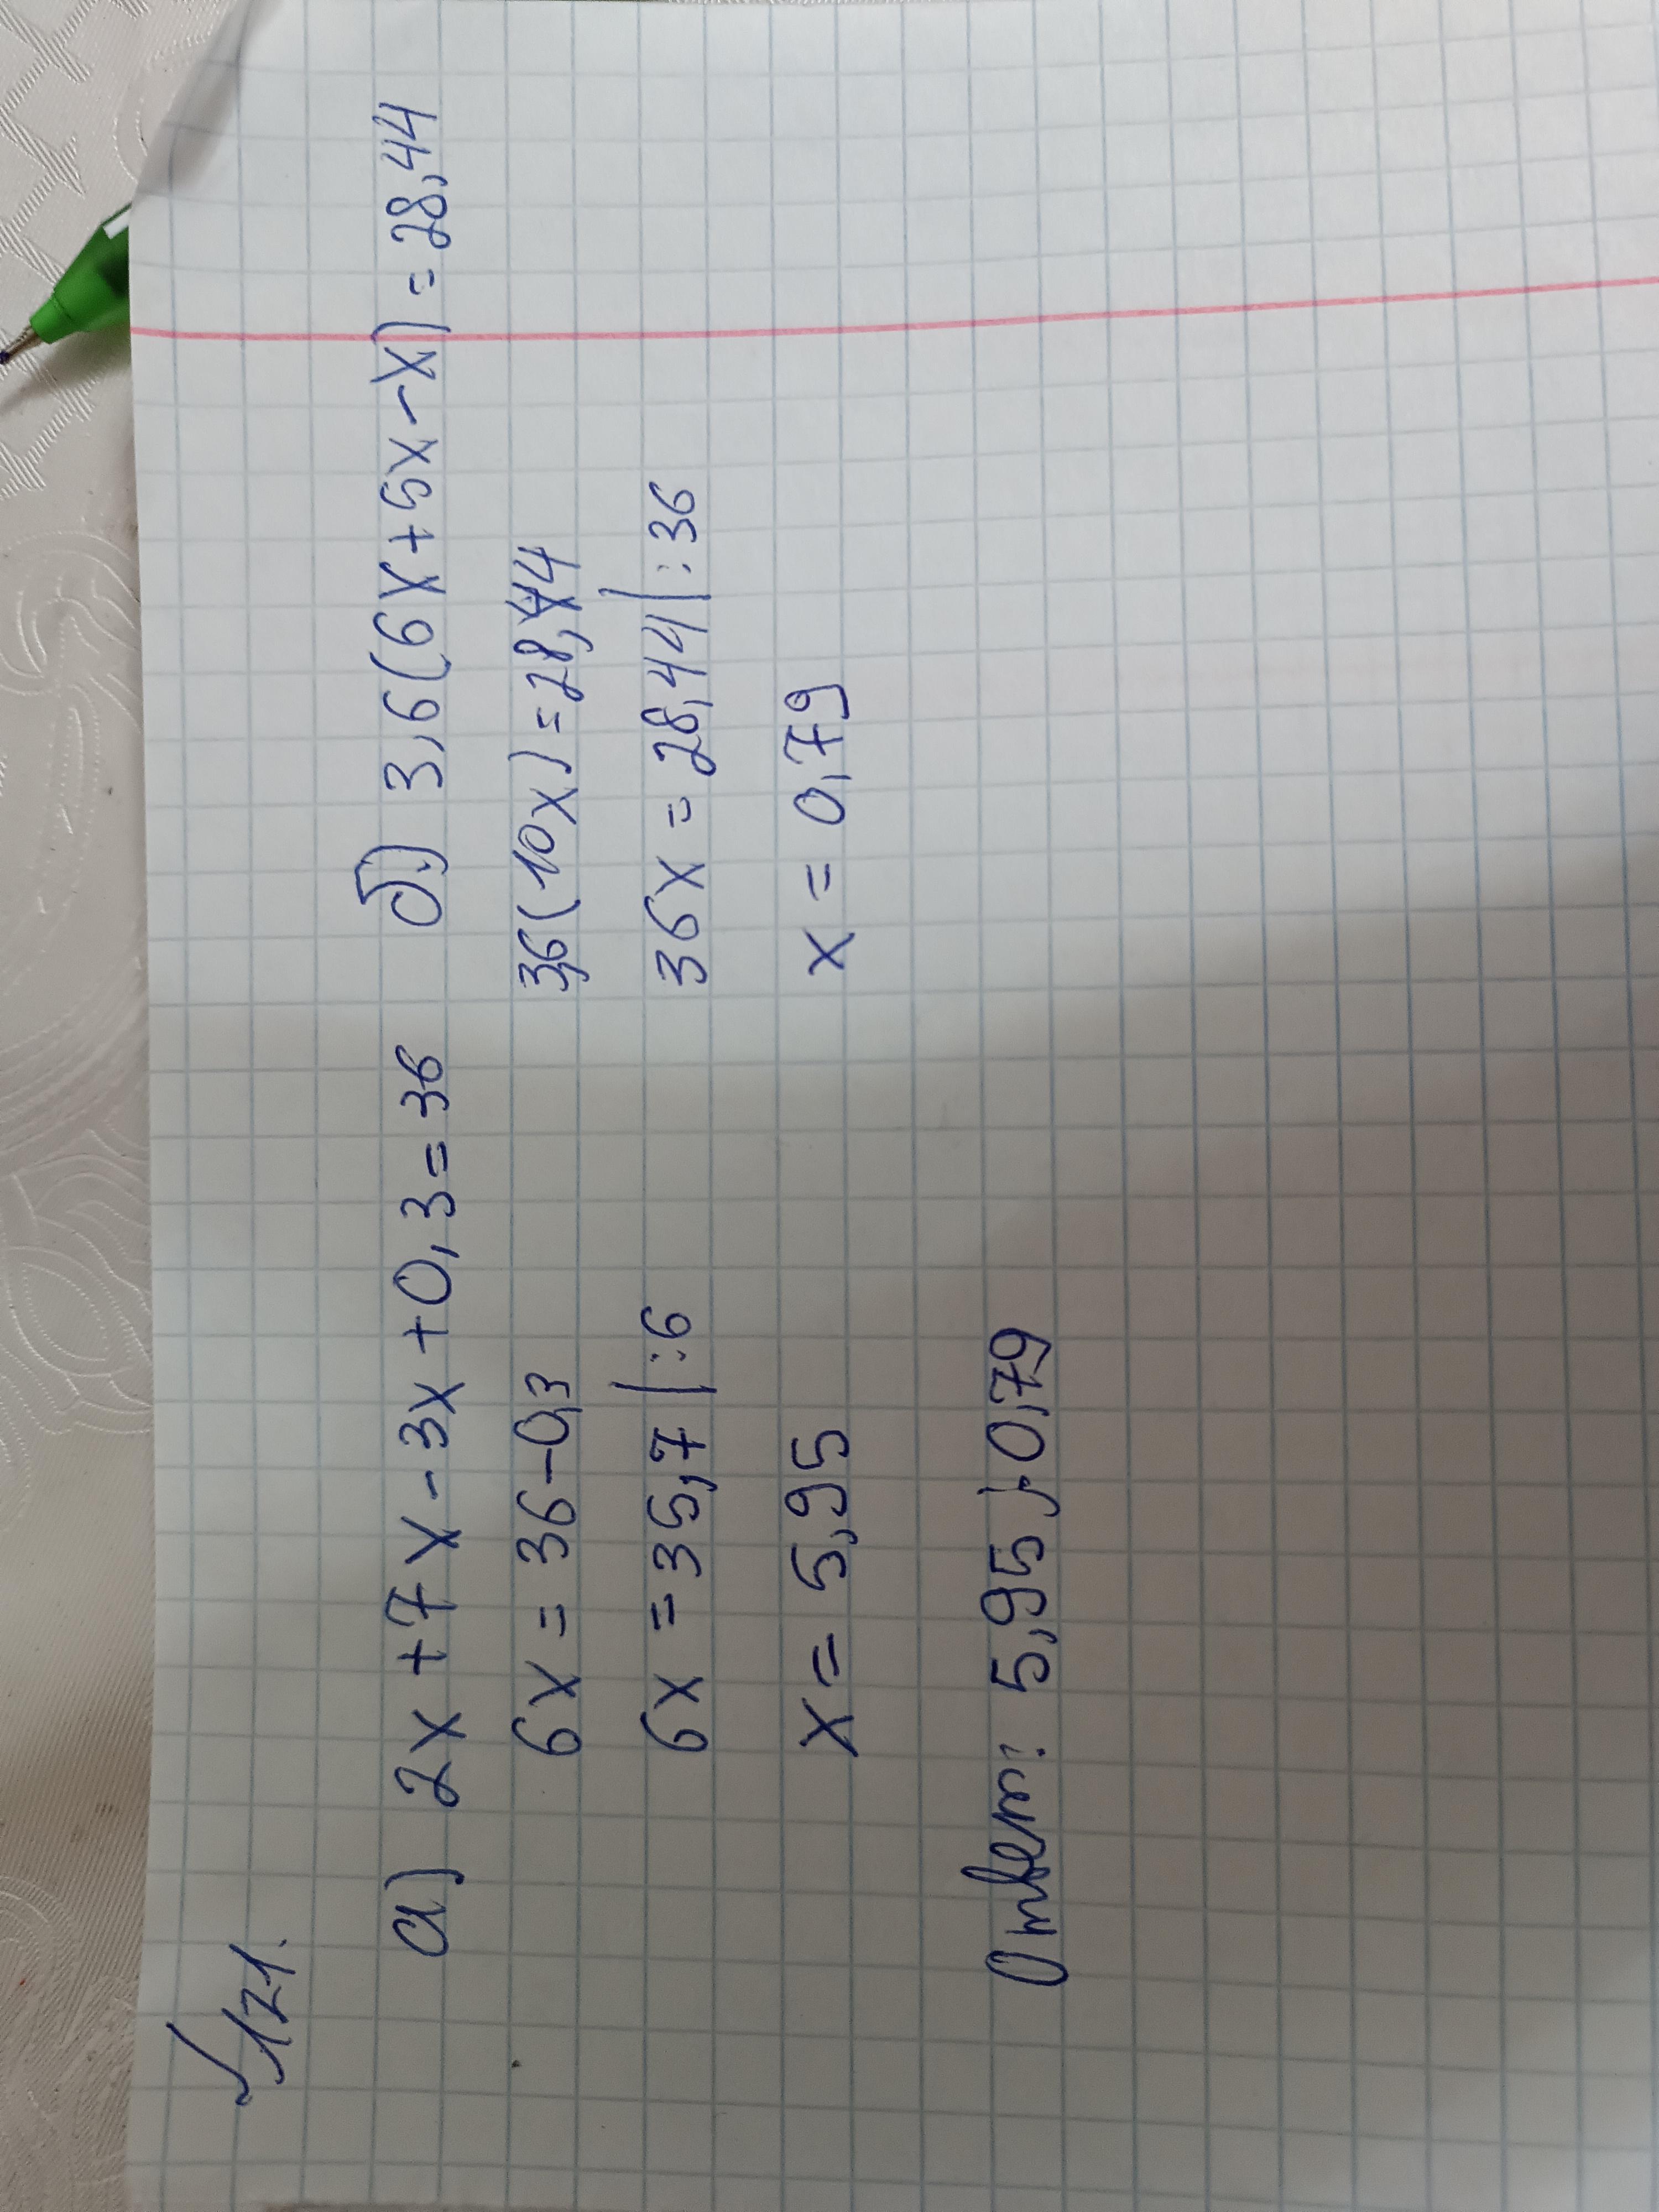 √121.
а) 2x+7x-3x+0,3=36
6x=36-0,3
6x=35,7|:6
x=5,95
б) 3,6(6x+5x-x)=28,44
3,6(10x)=28,44
36x=28,44|:36
x=0,79
Ответ: 5,95; 0,79